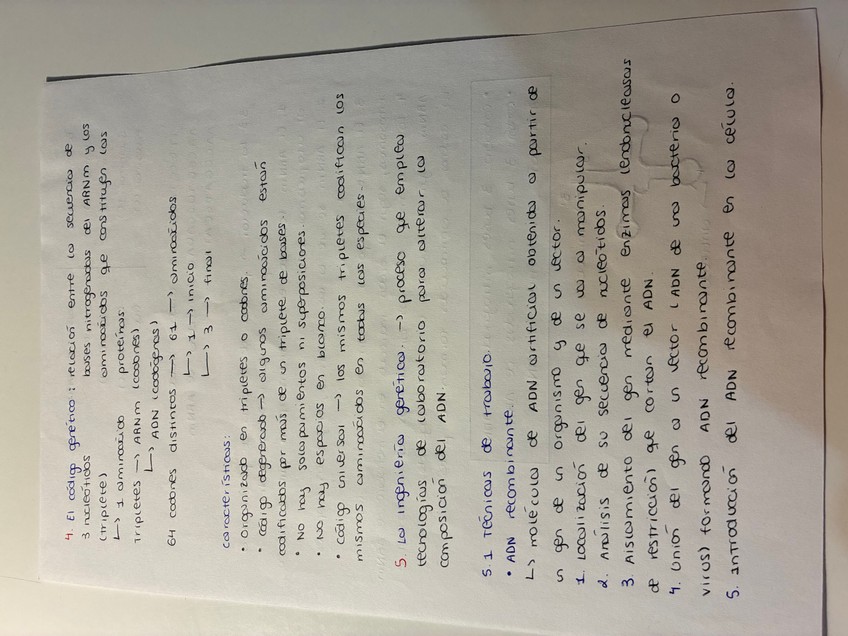 4. El código genético: relación entre la secuencia de
3 nucleótidos bases nitrogenadas del ARNm y los
(triplete) aminoácidos que constituyen las
↳ 1 aminoácido proteínas.
Tripletes → ARNm (codones)
↳ ADN (codógenos)
64 codones distintos → 61 → aminoácidos
↳ 1 → inicio
↳ 3 → final
Características:
• Organizado en tripletes o codones.
• Código degenerado → algunos aminoácidos están
codificados por más de un triplete de bases.
• No hay solapamientos ni superposiciones.
• No hay espacios en blanco.
• Código universal → los mismos tripletes codifican los
mismos aminoácidos en todas las especies.
5. La ingeniería genética. → proceso que emplea
tecnologías de laboratorio para alterar la
composición del ADN.
5.1 Técnicas de trabajo.
• ADN recombinante.
↳ molécula de ADN artificial obtenida a partir de
un gen de un organismo y de un vector.
1. Localización del gen que se va a manipular.
2. Análisis de su secuencia de nucleótidos.
3. Aislamiento del gen mediante enzimas (endonucleasas
de restricción) que cortan el ADN.
4. Unión del gen a un vector (ADN de una bacteria o
virus) formando ADN recombinante.
5. Introducción del ADN recombinante en la célula.